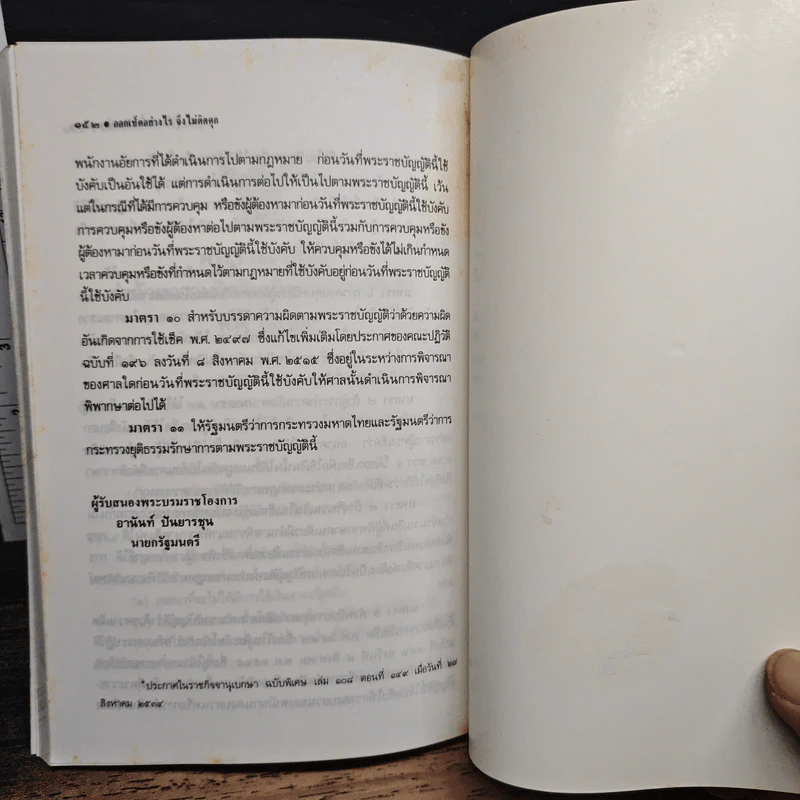 ๑๕๒ • ออกเช็คอย่างไร จึงไม่ติดคุก
พนักงานอัยการที่ได้ดำเนินการไปตามกฎหมาย ก่อนวันที่พระราชบัญญัตินี้ใช้
บังคับเป็นอันใช้ได้ แต่การดำเนินการต่อไปให้เป็นไปตามพระราชบัญญัตินี้ เว้น
แต่ในกรณีที่ได้มีการควบคุม หรือขังผู้ต้องหามาก่อนวันที่พระราชบัญญัตินี้ใช้บังคับ
การควบคุมหรือขังผู้ต้องหาต่อไปตามพระราชบัญญัตินี้รวมกับการควบคุมหรือขัง
ผู้ต้องหามาก่อนวันที่พระราชบัญญัตินี้ใช้บังคับ ให้ควบคุมหรือขังได้ไม่เกินกำหนด
เวลาควบคุมหรือขังที่กำหนดไว้ตามกฎหมายที่ใช้บังคับอยู่ก่อนวันที่พระราชบัญญัติ
นี้ใช้บังคับ
มาตรา ๑๐ สำหรับบรรดาความผิดตามพระราชบัญญัติว่าด้วยความผิด
อันเกิดจากการใช้เช็ค พ.ศ. ๒๔๙๗ ซึ่งแก้ไขเพิ่มเติมโดยประกาศของคณะปฏิวัติ
ฉบับที่ ๑๙๖ ลงวันที่ ๘ สิงหาคม พ.ศ. ๒๕๑๕ ซึ่งอยู่ในระหว่างการพิจารณา
ของศาลใดก่อนวันที่พระราชบัญญัตินี้ใช้บังคับให้ศาลนั้นดำเนินการพิจารณา
พิพากษาต่อไปได้
มาตรา ๑๑ ให้รัฐมนตรีว่าการกระทรวงมหาดไทยและรัฐมนตรีว่าการ
กระทรวงยุติธรรมรักษาการตามพระราชบัญญัตินี้
ผู้รับสนองพระบรมราชโองการ
อานันท์ ปันยารชุน
นายกรัฐมนตรี
*ประกาศในราชกิจจานุเบกษา ฉบับพิเศษ เล่ม ๑๐๘ ตอนที่ ๑๔๙ เมื่อวันที่ ๒๗
สิงหาคม ๒๕๓๔